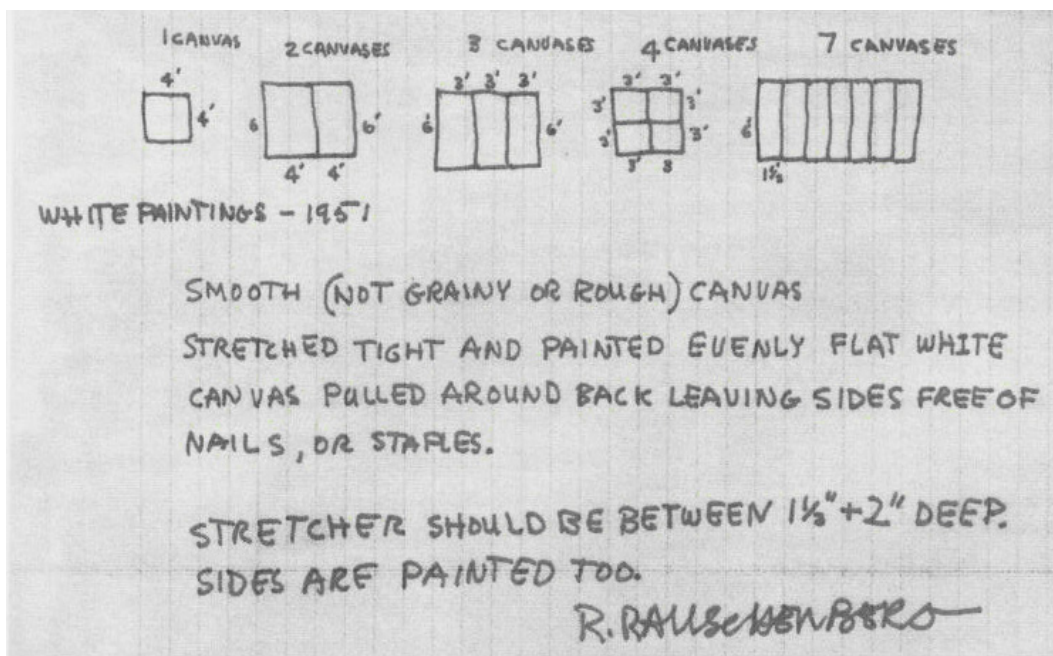 1 CANVAS 2 CANVASES 3 CANVASES 4 CANVASES 7 CANVASES
4' 3' 3' 3' 3' 3'
4' 6 6' 6' 6' 3' 3' 6'
3' 3'
4' 4' 3' 3 1½'
WHITE PAINTINGS - 1951
SMOOTH (NOT GRAINY OR ROUGH) CANVAS
STRETCHED TIGHT AND PAINTED EVENLY FLAT WHITE
CANVAS PULLED AROUND BACK LEAVING SIDES FREE OF
NAILS, OR STAPLES.
STRETCHER SHOULD BE BETWEEN 1½"+2" DEEP.
SIDES ARE PAINTED TOO.
R. RAUSCHENBERG